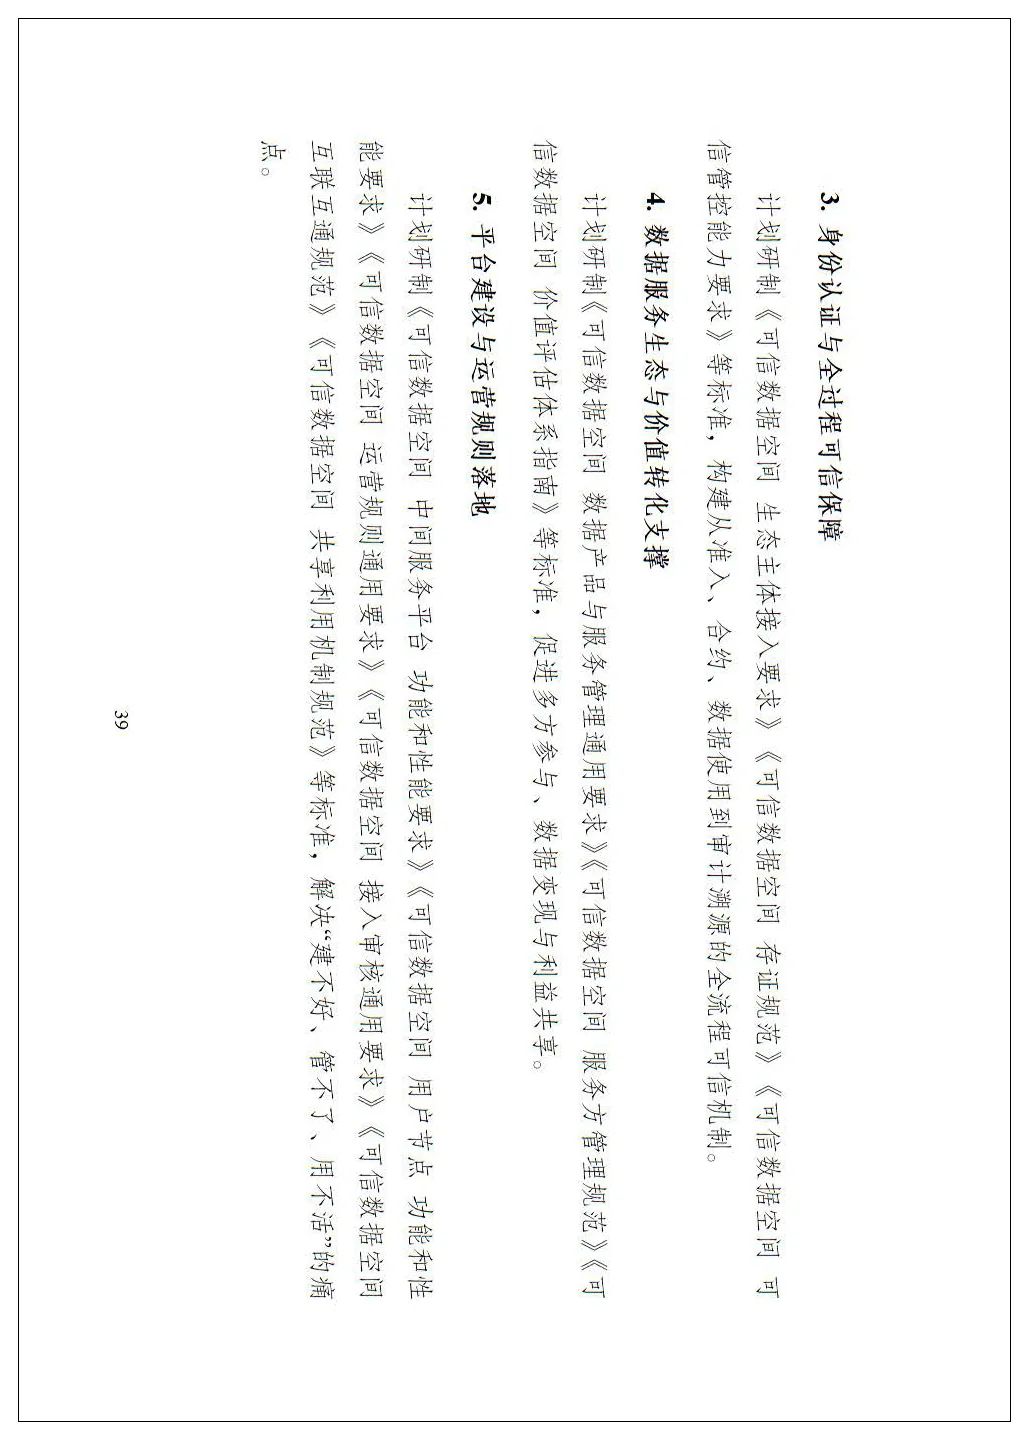 3. 身份认证与全过程可信保障
计划研制《可信数据空间 生态主体接入要求》《可信数据空间 存证规范》《可信数据空间 可
信管控能力要求》等标准，构建从准入、合约、数据使用到审计溯源的全流程可信机制。
4. 数据服务生态与价值转化支撑
计划研制《可信数据空间 数据产品与服务管理通用要求》《可信数据空间 服务方管理规范》《可
信数据空间 价值评估体系指南》等标准，促进多方参与、数据变现与利益共享。
5. 平台建设与运营规则落地
计划研制《可信数据空间 中间服务平台 功能和性能要求》《可信数据空间 用户节点 功能和性
能要求》《可信数据空间 运营规则通用要求》《可信数据空间 接入审核通用要求》《可信数据空间
互联互通规范》《可信数据空间 共享利用机制规范》等标准，解决“建不好、管不了、用不活”的痛
点。
39